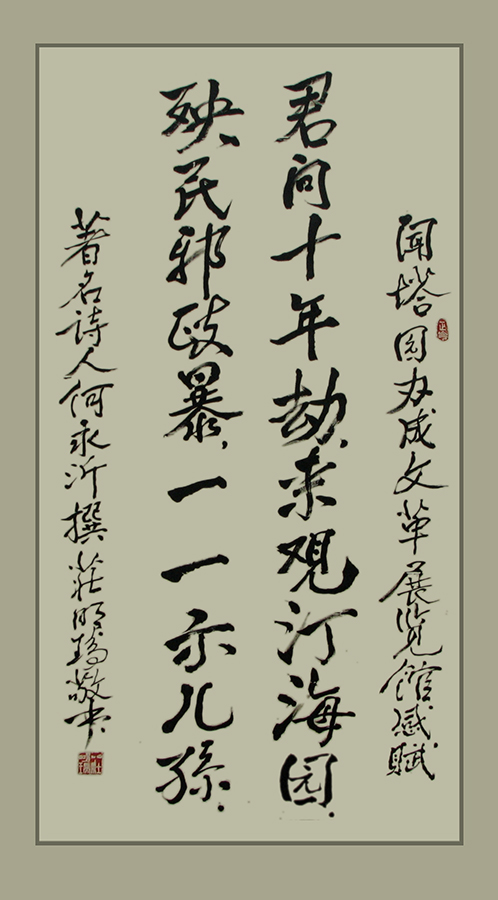 闻塔园办成文革展览馆感赋
君问十年劫，来观汀海园.
殃民邪政暴，一一示儿孙.
著名詩人何永沂撰 莊明敬书